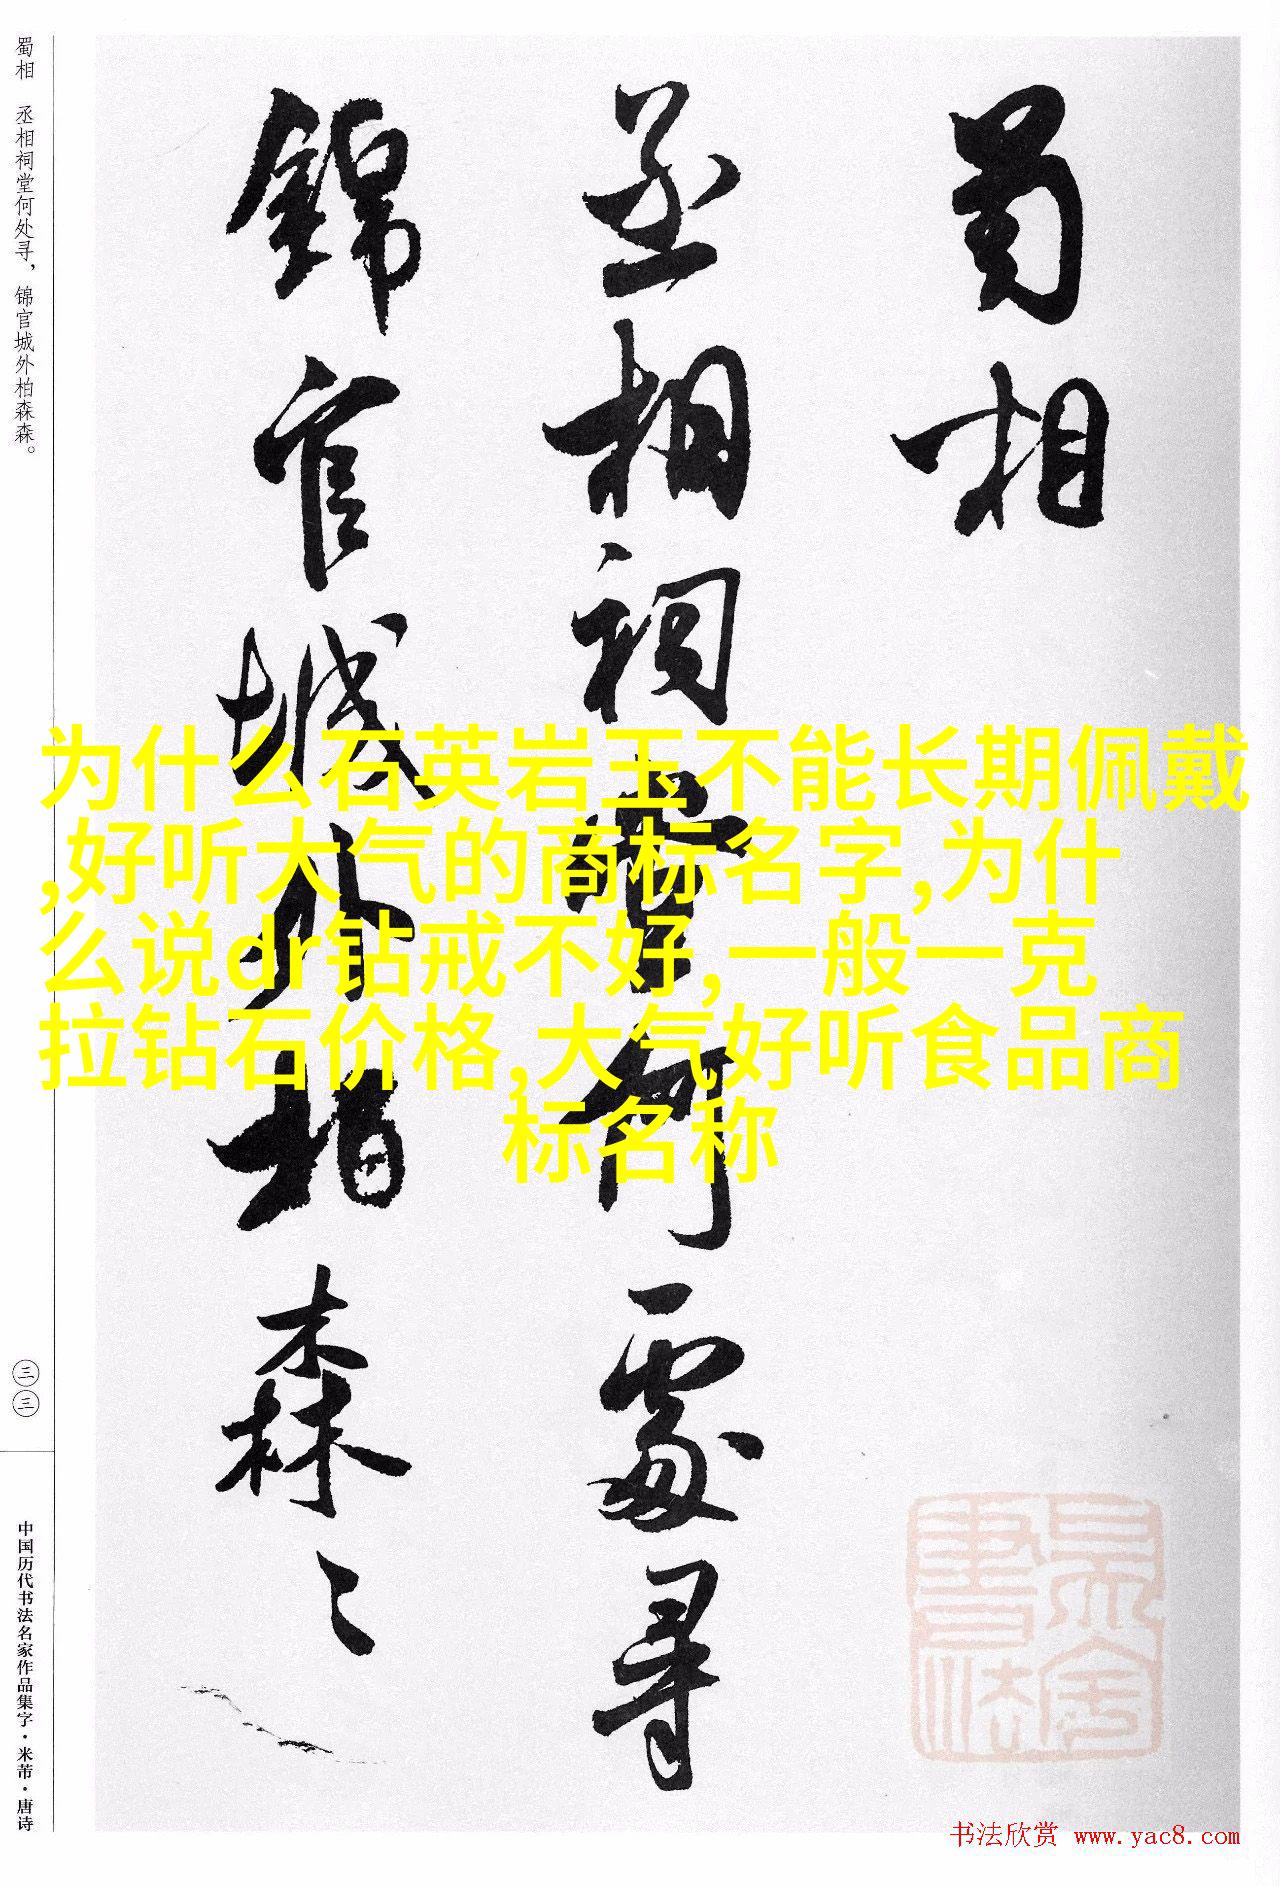 蜀相
丞相祠堂何處寻
錦官城外柏森〻
蜀相 丞相祠堂何处寻，锦官城外柏森森。
三三
中国历代书法名家作品集字·米芾·唐诗
为什么石英岩玉不能长期佩戴
,好听大气的商标名字,为什
么说dr钻戒不好,一般一克
拉钻石价格,大气好听食品商
标名称
书法欣赏 www.yac8.com